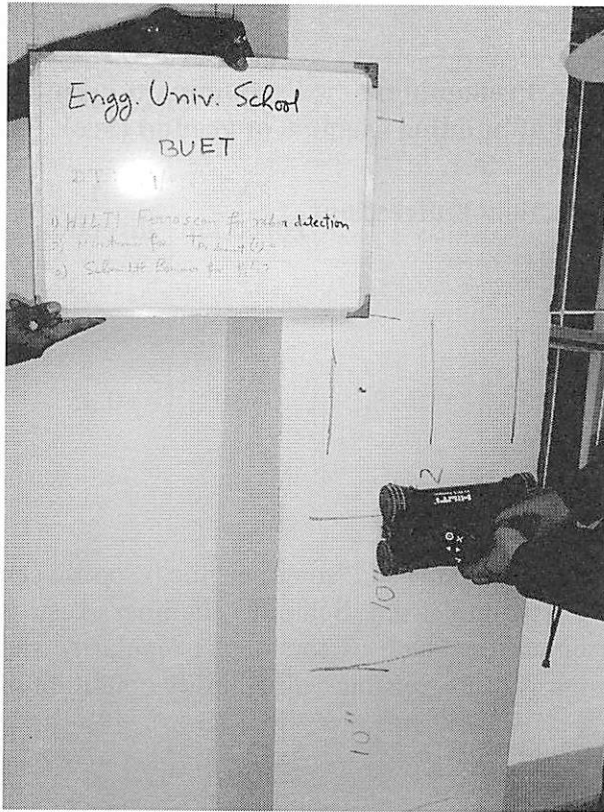 Engg. Univ. School
BUET
1) HILTI Ferroscan for rebar detection
2) for
3) Schmidt Hammer for
HILTI
2
10"
10"